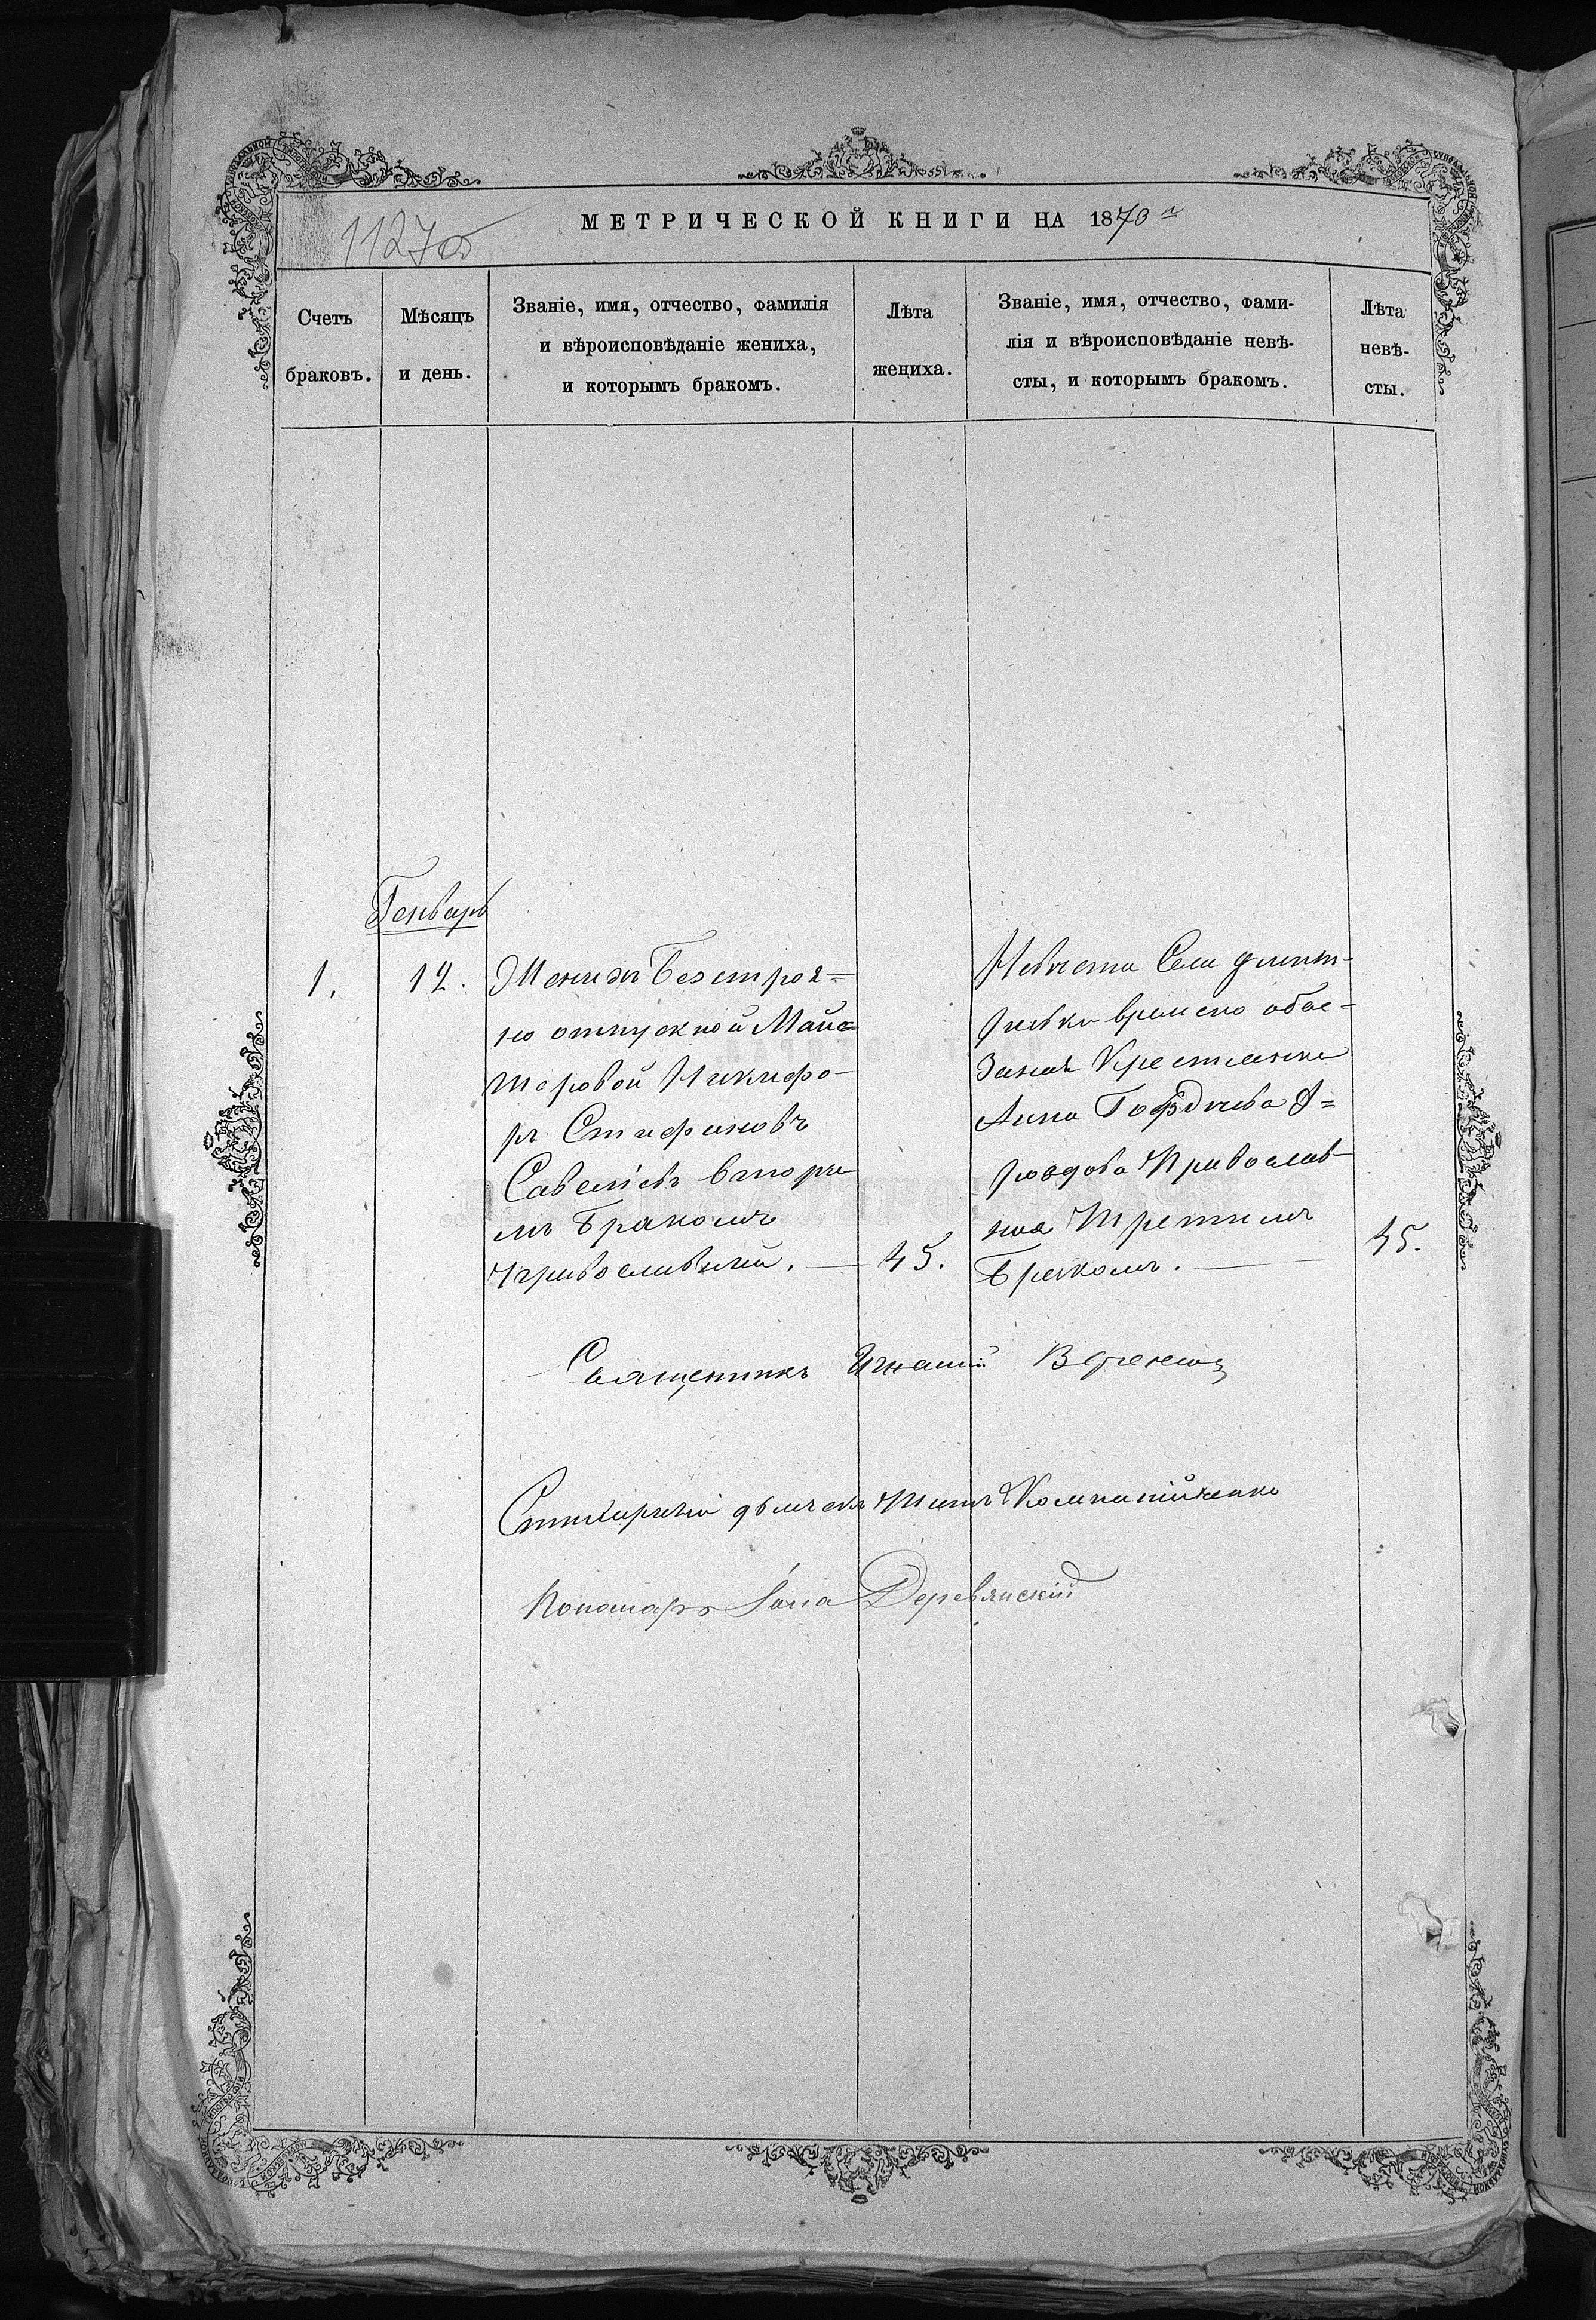 МЕТРИЧЕСКОЙ КНИГИ НА 1870
1127об
Счетъ браковъ.
Мѣсяцъ и день.
Званіе, имя, отчество, фамилія
и вѣроисповѣданіе жениха,
и которымъ бракомъ.
Лѣта жениха.
Званіе, имя, отчество, фами-
лія и вѣроисповѣданіе невѣ-
сты, и которымъ бракомъ.
Лѣта невѣ-
сты.
Генварь
1.
12.
Женихъ Безстроч=
но отпускной Майс=
теровой Никифо-
ръ Стефановъ
Савельевъ вторы
мъ Бракомъ
православный.
45.
Невѣста Села
временно обяе-
заная Крестьянка
Анна
вдова Православ-
ная Третимъ
Бракомъ.
45.
Священникъ Игнатій
дьячекъ Титъ Компанійченко
Пономарь Іона Деревянскій